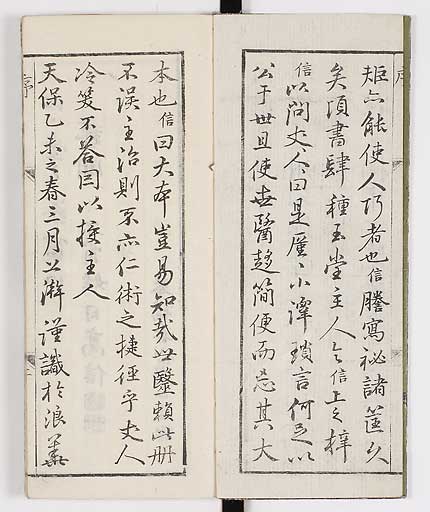 序
矩亦能使人巧者也信謄寫祕諸筐久
矣頃書肆種玉堂主人令信上之梓
信以問丈人曰是區〻小譚瑣言何足以
公于世且使世醫趍簡便而忘其大
本也信曰大本豈易知哉世醫賴此册
不誤主治則不亦仁術之捷徑乎丈人
冷笑不答因以授主人
天保乙未之春三月上澣謹識於浪華
序